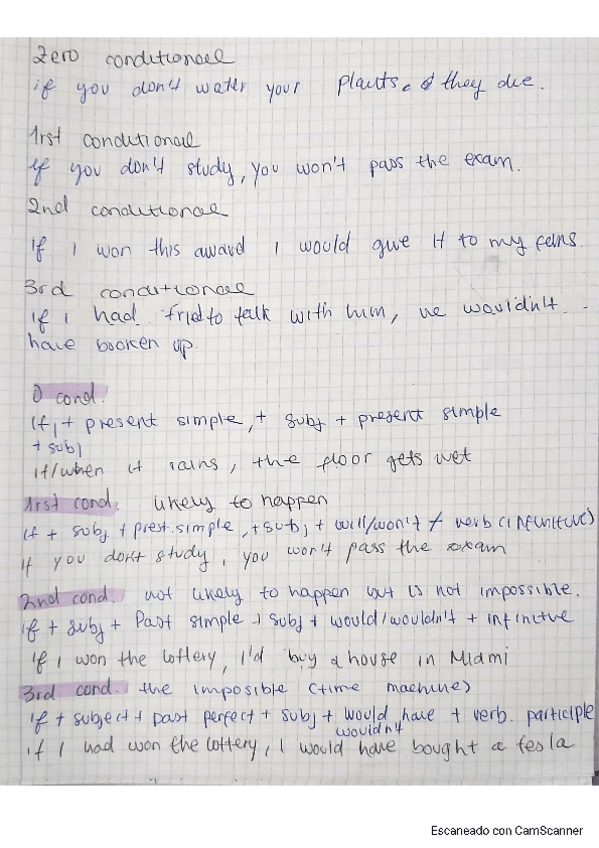 Zero conditional
if you don't water your plants, they die.
1rst conditional
If you don't study, you won't pass the exam.
2nd conditional
If I won this award I would give it to my fans.
3rd conditional
if i had tried to talk with him, we wouldn't
have brocken up.
0 cond.
If, + present simple, + subj + present simple
+ subj
if/when it rains, the floor gets wet
1rst cond. likely to happen
if + subj + prest.simple, + subj + will/won't + verb (infinitive)
If you don't study, you won't pass the exam
2nd cond. not likely to happen but is not impossible.
if + subj + Past simple + subj + would/wouldn't + infinitive
If I won the lottery, I'd buy a house in Miami
3rd cond. the imposible (time machine)
if + subject + past perfect + subj + would have + verb. participle
wouldn't
if I had won the lottery, I would have bought a tesla
Escaneado con CamScanner